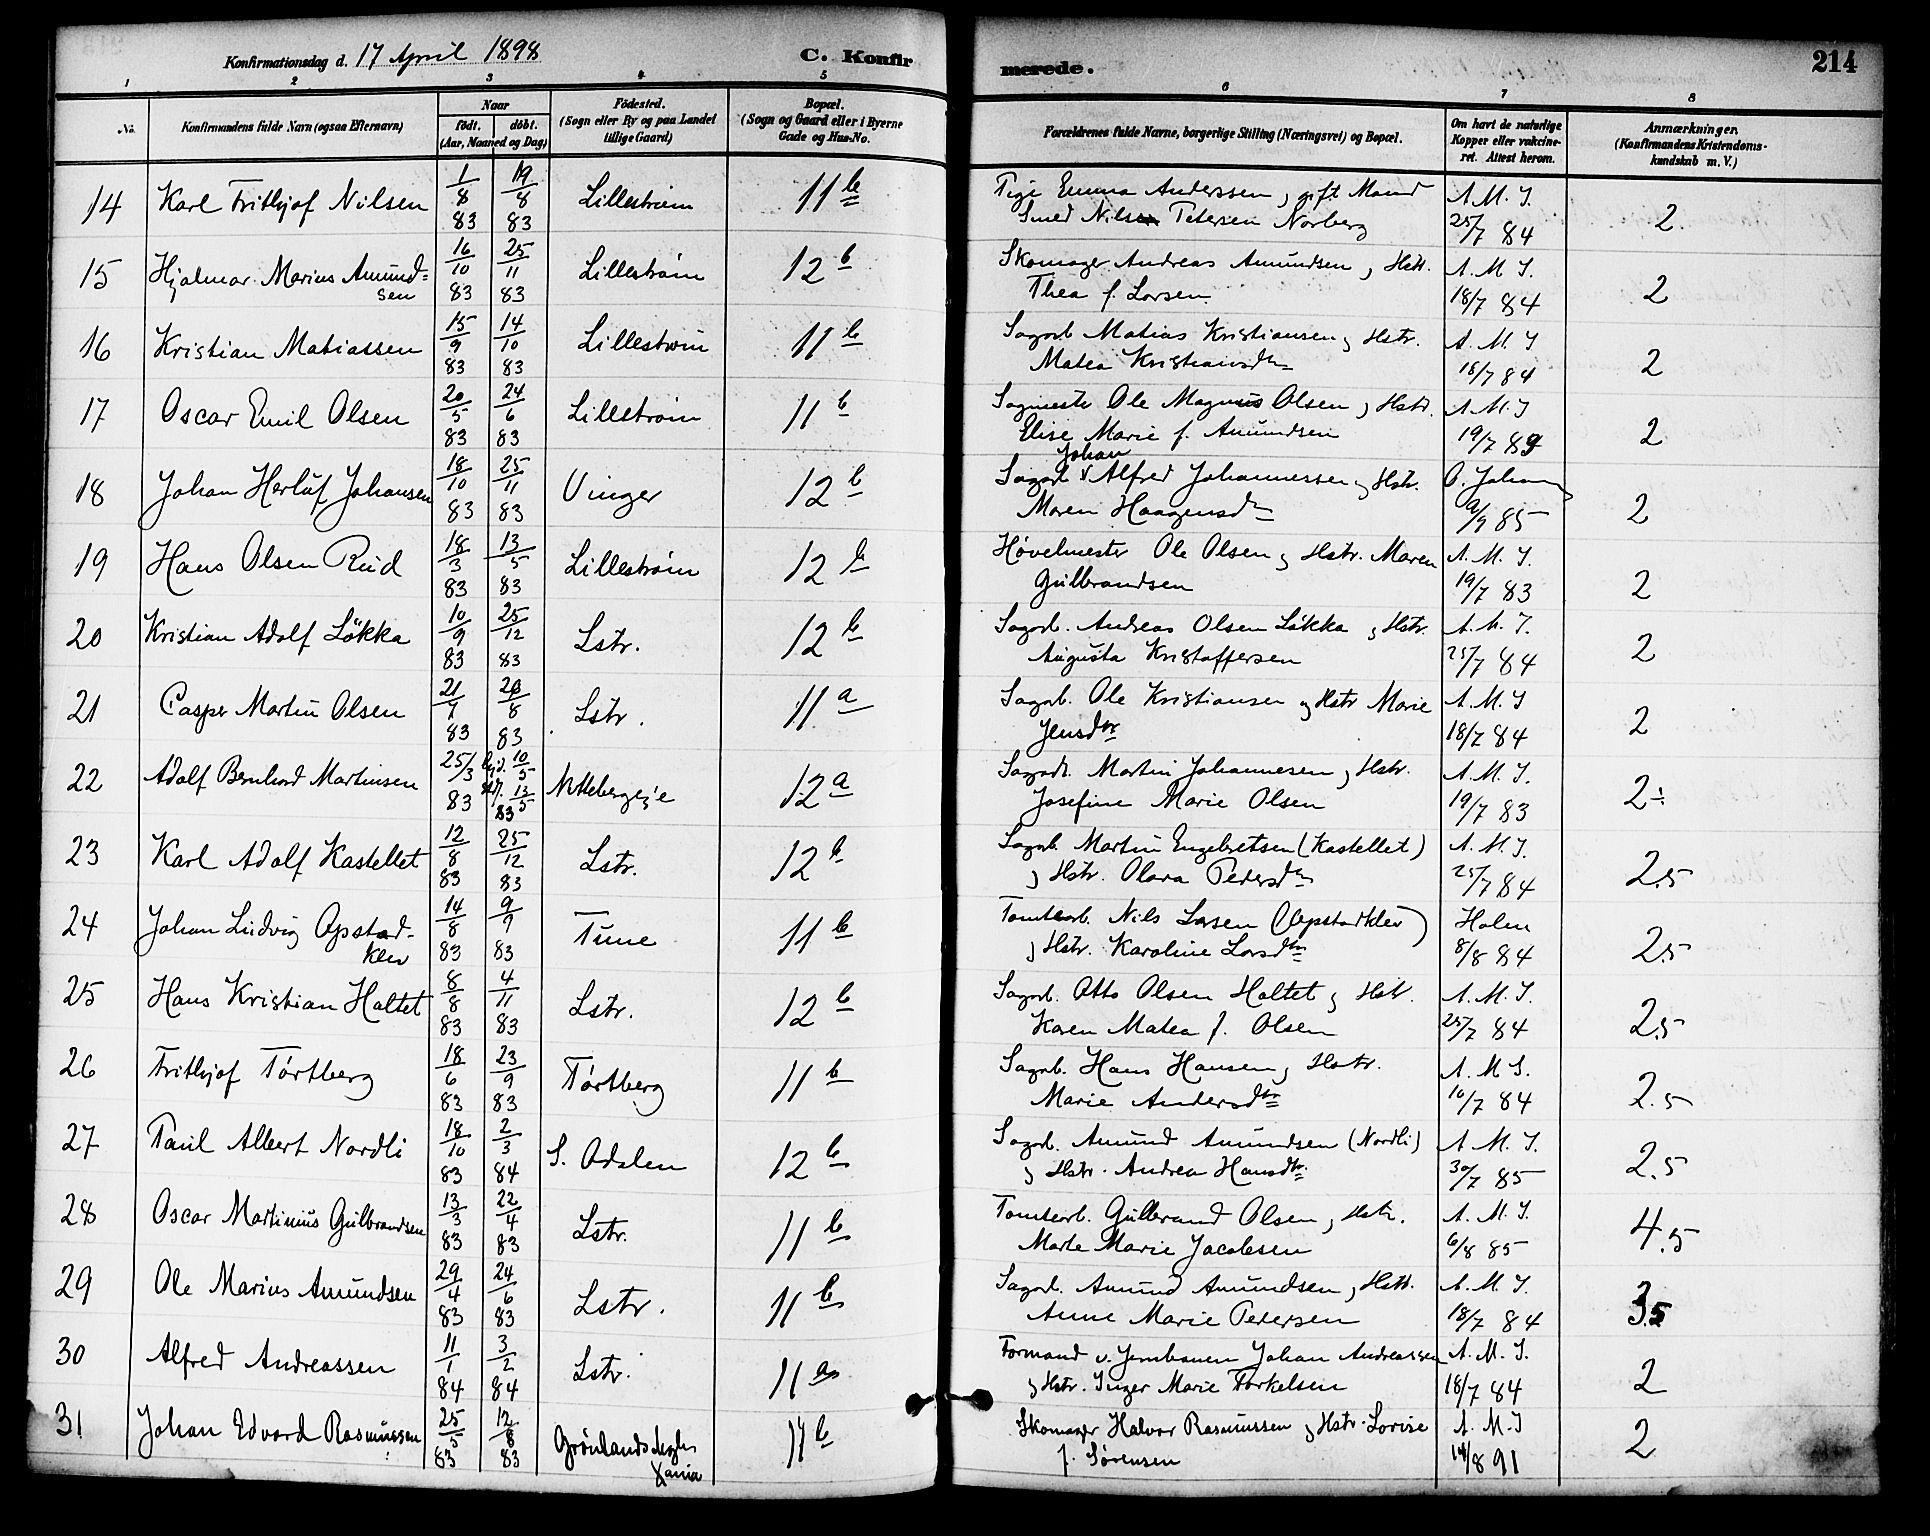 Konfirmationsdag d. 17 April 1898
C. Konfirmerede.
214
1 2 3 4 5 6 7 8
No.
Konfirmandens fulde Navn (ogsaa Efternavn)
Naar
født. døbt.
(Aar, Maaned og Dag)
Födested.
(Sogn eller By og paa Landet
tillige Gaard)
Bopæl.
(Sogn og Gaard eller i Byerne
Gade og Hus-No.
Forældrenes fulde Navne, borgerlige Stilling (Næringsvei) og Bopæl.
Om havt de naturlige
Kopper eller vakcine-
ret. Attest herom.
Anmærkninger.
(Konfirmandens Kristendoms-
kundskab m. V.)
14 Karl Frithjof Nilsen 1/8 83 19/8 83 Lillestrøm 11 b Pige Emma Anderssen, gift Mand A. M. J.
Smed Nils Petersen Norberg 25/7 84 2.
15 Hjalmar Marius Amund= 16/10 83 25/11 83 Lillestrøm 12 b Skomager Andreas Amundsen, Hstr. A. M. J.
sen Thea f. Larsen 18/7 84 2
16 Kristian Matiassen 15/9 83 14/10 83 Lillestrøm 11 b Sagarb. Matias Kristiansen og Hstr. A. M. J
Matea Kristiansdtr 18/7 84 2
17 Oscar Emil Olsen 20/5 83 24/6 83 Lillestrøm 11 b Sagmester Ole Magnus Olsen, Hstr. A. M. J
Elise Marie f. Amundsen 19/7 84 2
18 Johan Herluf Johansen 18/10 83 25/11 83 Vinger 12 b Sagarb v Johan Alfred Johannessen og Hstr. O. Johan
Maren Haagensdtr 9/9 85 2
19 Hans Olsen Rud 18/3 83 13/5 83 Lillestrøm 12 b Høvelmester Ole Olsen og Hstr. Maren A. M. J.
Gulbrandsen 19/7 83 2
20 Kristian Adolf Løkka 10/9 83 25/12 83 Lstr. 12 b Sagarb. Andreas Olsen Løkka, Hstr. A. M. J.
Augusta Kristoffersen 25/7 84 2
21 Casper Martin Olsen 21/7 83 26/8 83 Lstr. 11 a Sagarb. Ole Kristiansen og Hstr Marie A. M. J
Jensdtr 18/7 84 2
22 Adolf Bernhard Martinsen 25/3 83 10/5 13/5 83 12 a Sagarb. Martin Johannesen, Hstr. A. M. J.
Josefine Marie Olsen 19/7 83 2÷
23 Karl Adolf Kastellet 12/8 83 25/12 83 Lstr. 12 b Sagarb. Martin Engebretsen (Kastellet) A. M. J.
, Hstr. Olava Pedersdtr 25/7 84 2.5
24 Johan Ludvig Opstad- 14/8 83 9/9 83 Tune 11 b Tomtearb. Nils Larsen (Opstadklev) Holm
klev , Hstr. Karoline Larsdtr 8/8 84 2.5
25 Hans Kristian Holtet 8/8 83 4/11 83 Lstr. 12 b Sagarb. Otto Olsen Holtet, Hstr. A. M. J.
Karen Matea f. Olsen 25/7 84 2.5
26 Frithjof Tørtberg 18/6 83 23/9 83 Tørtberg 11 b Sagarb. Hans Hansen, Hstr. A. M J.
Marie Andersdtr 16/7 84 2.5
27 Paul Albert Nordli 18/10 83 2/3 84 S. Odalen 12 b Sagarb. Amund Amundsen (Nordli) A. M. J.
, Hstr. Andrea Hansdtr. 30/7 85 2.5
28 Oscar Martinius Gulbrandsen 13/3 83 22/4 83 Lstr. 11 b Tomtearb. Gulbrand Olsen, Hstr. A. M. J.
Marte Marie Jacobsen 6/8 85 4.5
29 Ole Marius Amundsen 29/4 83 24/6 83 Lstr. 11 b Sagarb. Amund Amundsen, Hstr. A. M. J.
Anne Marie Petersen 18/7 84 3.5
30 Alfred Andreassen 11/1 84 3/2 84 Lstr. 11 a Formand v. Jernbanen Johan Andreassen A. M. J.
, Hstr. Inger Marie Torkelsen 18/7 84 2
31 Johan Edvard Rasmussen 25/5 83 12/8 83 Grønlands Xania 11 b Skomager Halvor Rasmussen og Hstr. Lovise A. M. J
f. Sørensen 14/8 91 2